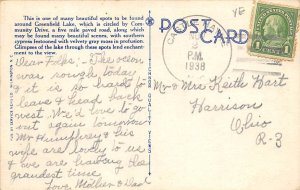 This is one of many beautiful spots to be found
around Greenfield Lake, which is circled by Com-
munity Drive, a five mile paved road, along which
may be found many beautiful scenes, with southern
cypress festooned with velvety gray moss in profusion.
Glimpses of the lake through these spots lend enchant-
ment to the view.
POST CARD
P.M.
1938
Dear Folks:- The ocean
was rough today &
it is so hard to
leave & head back
west. We'd love to go
out again tomorrow
Mr Humphrey & his
wife are lovely to us
& we are having the
grandest time
Love Mother & Dad
Mr & Mrs Keith Hart
Harrison
Ohio
R-3